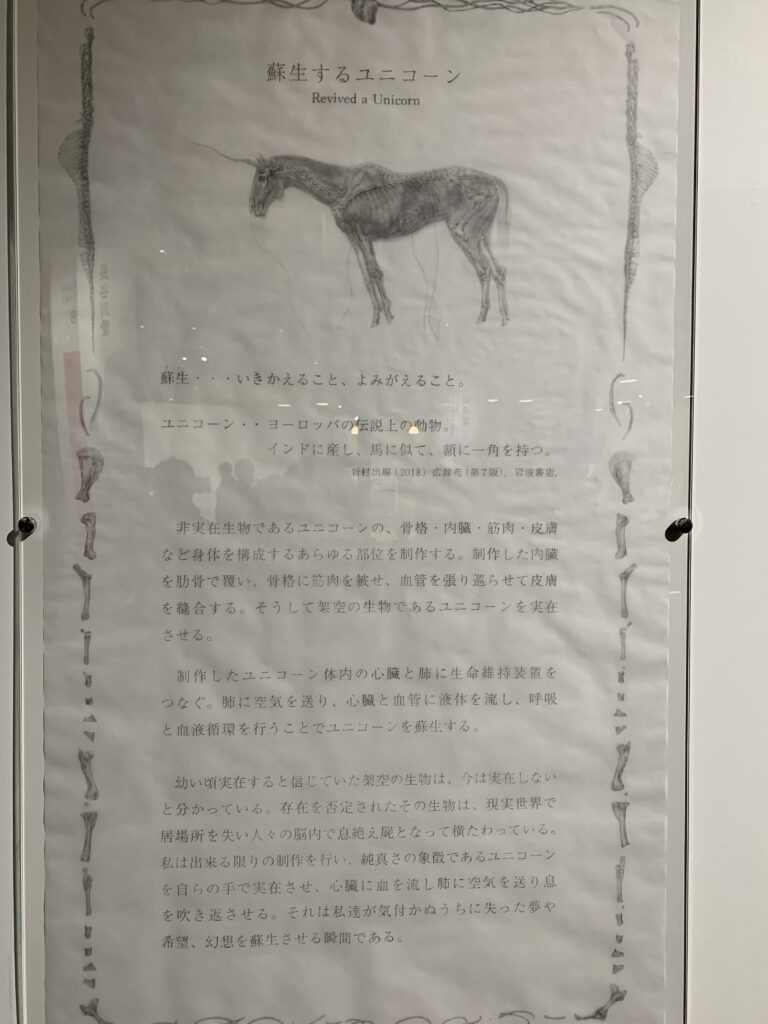 蘇生するユニコーン
Revived a Unicorn
蘇生・・・いきかえること、よみがえること。
ユニコーン・・ヨーロッパの伝説上の動物。
インドに産し、馬に似て、額に一角を持つ。
新村出編（2018）広辞苑（第7版）．岩波書店．
非実在生物であるユニコーンの、骨格・内臓・筋肉・皮膚
など身体を構成するあらゆる部位を制作する。制作した内臓
を肋骨で覆い、骨格に筋肉を被せ、血管を張り巡らせて皮膚
を縫合する。そうして架空の生物であるユニコーンを実在
させる。
制作したユニコーン体内の心臓と肺に生命維持装置を
つなぐ。肺に空気を送り、心臓と血管に液体を流し、呼吸
と血液循環を行うことでユニコーンを蘇生する。
幼い頃実在すると信じていた架空の生物は、今は実在しない
と分かっている。存在を否定されたその生物は、現実世界で
居場所を失い人々の脳内で息絶え屍となって横たわっている。
私は出来る限りの制作を行い、純真さの象徴であるユニコーン
を自らの手で実在させ、心臓に血を流し肺に空気を送り息
を吹き返させる。それは私達が気付かぬうちに失った夢や
希望、幻想を蘇生させる瞬間である。